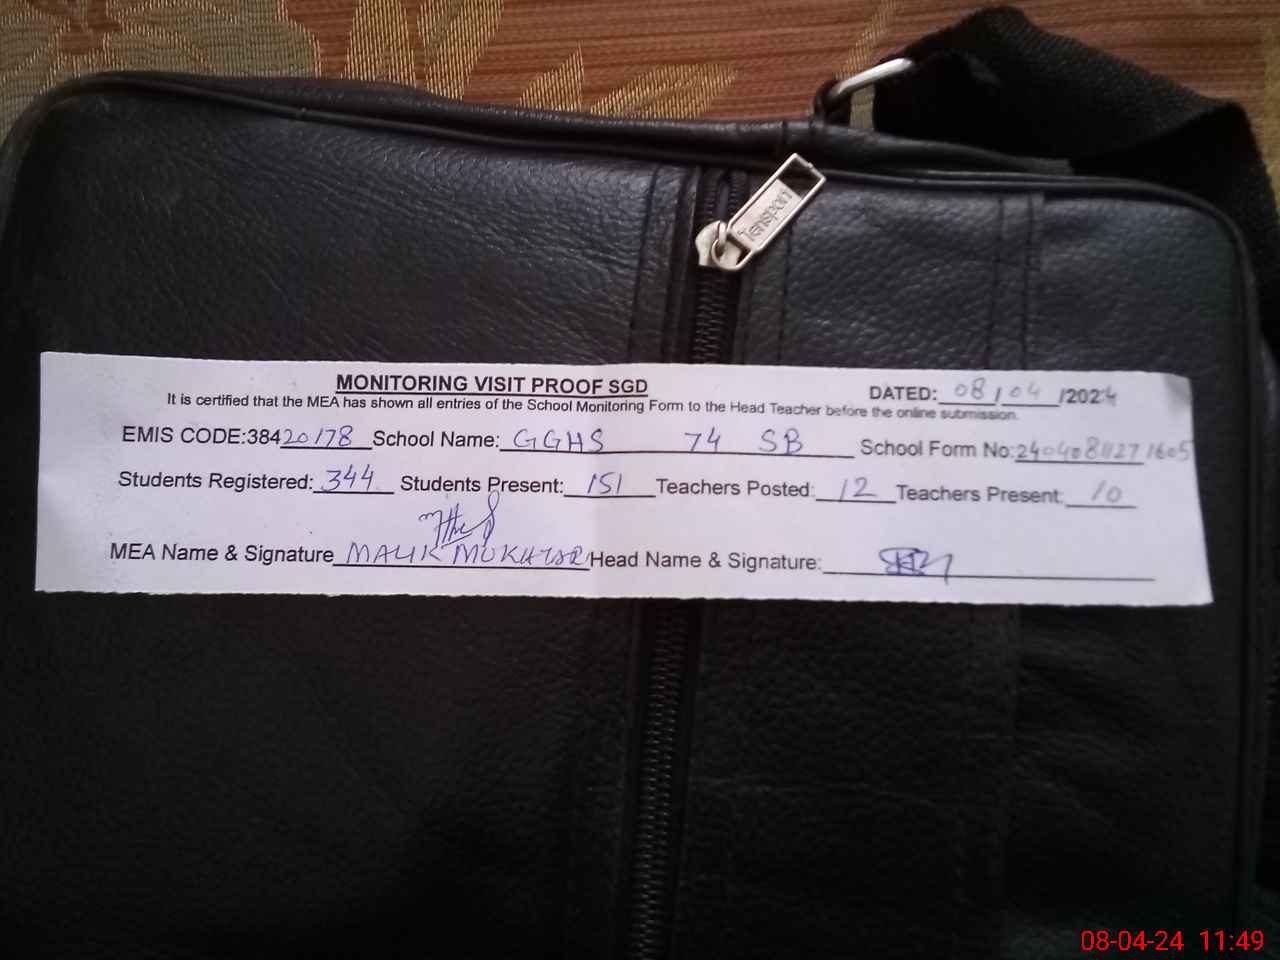 Tensport
MONITORING VISIT PROOF SGD
DATED: 08/04/2024
It is certified that the MEA has shown all entries of the School Monitoring Form to the Head Teacher before the online submission.
EMIS CODE:38420178 School Name: GGHS 74 SB School Form No:
Students Registered: 344 Students Present: 151 Teachers Posted: 12 Teachers Present: 10
MEA Name & Signature MALIK MUKHTAR Head Name & Signature:
08-04-24 11:49